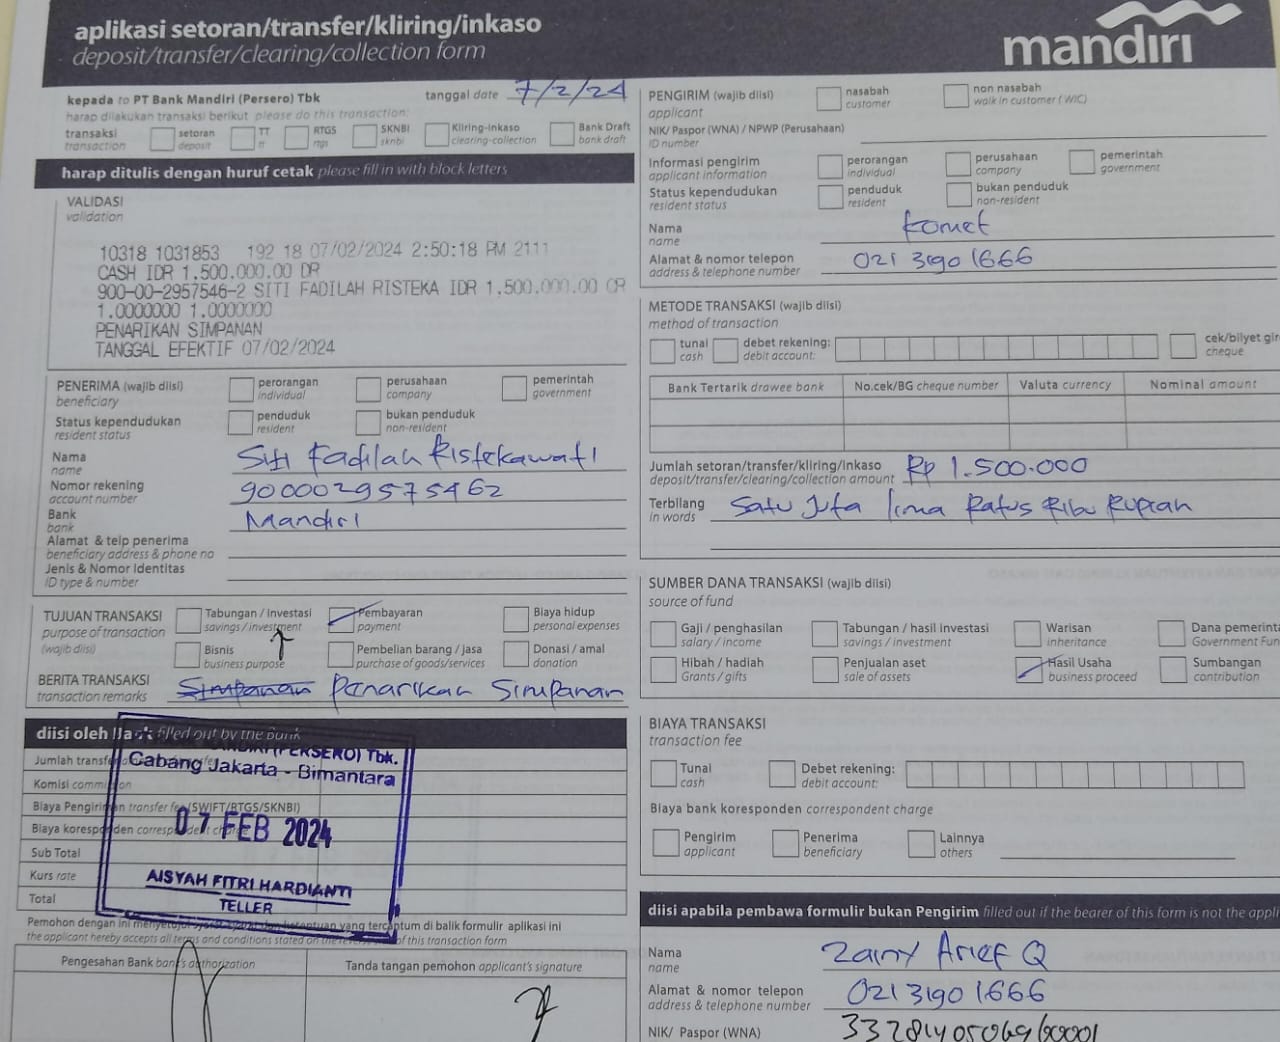 aplikasi setoran/transfer/kliring/inkaso
deposit/transfer/clearing/collection form
mandırı
kepada to PT Bank Mandiri (Persero) Tbk
tanggal date 7/2/24
harap dilakukan transaksi berikut please do this transaction:
transaksi
transaction
setoran
deposit
TT
tt
RTGS
rtgs
SKNBI
sknbi
Kliring-inkaso
clearing-collection
Bank Draft
bank draft
harap ditulis dengan huruf cetak please fill in with block letters
VALIDASI
validation
10318 1031853 192 18 07/02/2024 2:50:18 PM 2111
CASH IDR 1.500.000.00 DR
900-00-2957546-2 SITI FADILAH RISTEKA IDR 1.500.000.00 CR
1.0000000 1.0000000
PENARIKAN SIMPANAN
TANGGAL EFEKTIF 07/02/2024
PENERIMA (wajib diisi)
beneficiary
perorangan
individual
perusahaan
company
pemerintah
government
Status kependudukan
resident status
penduduk
resident
bukan penduduk
non-resident
Nama
name
Siti Fadilah Ristekawati
Nomor rekening
account number
9000029575462
Bank
bank
Mandiri
Alamat & telp penerima
beneficiary address & phone no
Jenis & Nomor Identitas
ID type & number
TUJUAN TRANSAKSI
purpose of transaction
(wajib diisi)
Tabungan / Investasi
savings / investment
Pembayaran
payment
Biaya hidup
personal expenses
Bisnis
business purpose
Pembelian barang / jasa
purchase of goods/services
Donasi / amal
donation
BERITA TRANSAKSI
transaction remarks
Simpanan Penarikan Simpanan
diisi oleh Bank filled out by the Bank
Jumlah transfer
Komisi commission
Biaya Pengiriman transfer fee (SWIFT/RTGS/SKNBI)
Biaya koresponden correspondent charge
Sub Total
Kurs rate
Total
(PERSERO) Tbk.
Cabang Jakarta - Bimantara
07 FEB 2024
AISYAH FITRI HARDIANTI
TELLER
Pemohon dengan ini menyetujui yang tercantum di balik formulir aplikasi ini
the applicant hereby accepts all terms and conditions stated on the of this transaction form
Pengesahan Bank bank's authorization
Tanda tangan pemohon applicant's signature
PENGIRIM (wajib diisi)
applicant
nasabah
customer
non nasabah
walk in customer (WIC)
NIK/ Paspor (WNA) / NPWP (Perusahaan)
ID number
Informasi pengirim
applicant information
perorangan
individual
perusahaan
company
pemerintah
government
Status kependudukan
resident status
penduduk
resident
bukan penduduk
non-resident
Nama
name
Komet
Alamat & nomor telepon
address & telephone number
021 3190 1666
METODE TRANSAKSI (wajib diisi)
method of transaction
tunai
cash
debet rekening:
debit account:
cek/bilyet gir
cheque
Bank Tertarik drawee bank
No.cek/BG cheque number
Valuta currency
Nominal amount
Jumlah setoran/transfer/kliring/inkaso
deposit/transfer/clearing/collection amount
Rp 1.500.000
Terbilang
in words
Satu Juta lima Ratus Ribu Rupiah
SUMBER DANA TRANSAKSI (wajib diisi)
source of fund
Gaji / penghasilan
salary / income
Tabungan / hasil investasi
savings / investment
Warisan
inheritance
Dana pemerinta
Government Fun
Hibah / hadiah
Grants / gifts
Penjualan aset
sale of assets
Hasil Usaha
business proceed
Sumbangan
contribution
BIAYA TRANSAKSI
transaction fee
Tunai
cash
Debet rekening:
debit account:
Biaya bank koresponden correspondent charge
Pengirim
applicant
Penerima
beneficiary
Lainnya
others
diisi apabila pembawa formulir bukan Pengirim filled out if the bearer of this form is not the appli
Nama
name
Zainy Arief Q
Alamat & nomor telepon
address & telephone number
021 3190 1666
NIK/ Paspor (WNA)